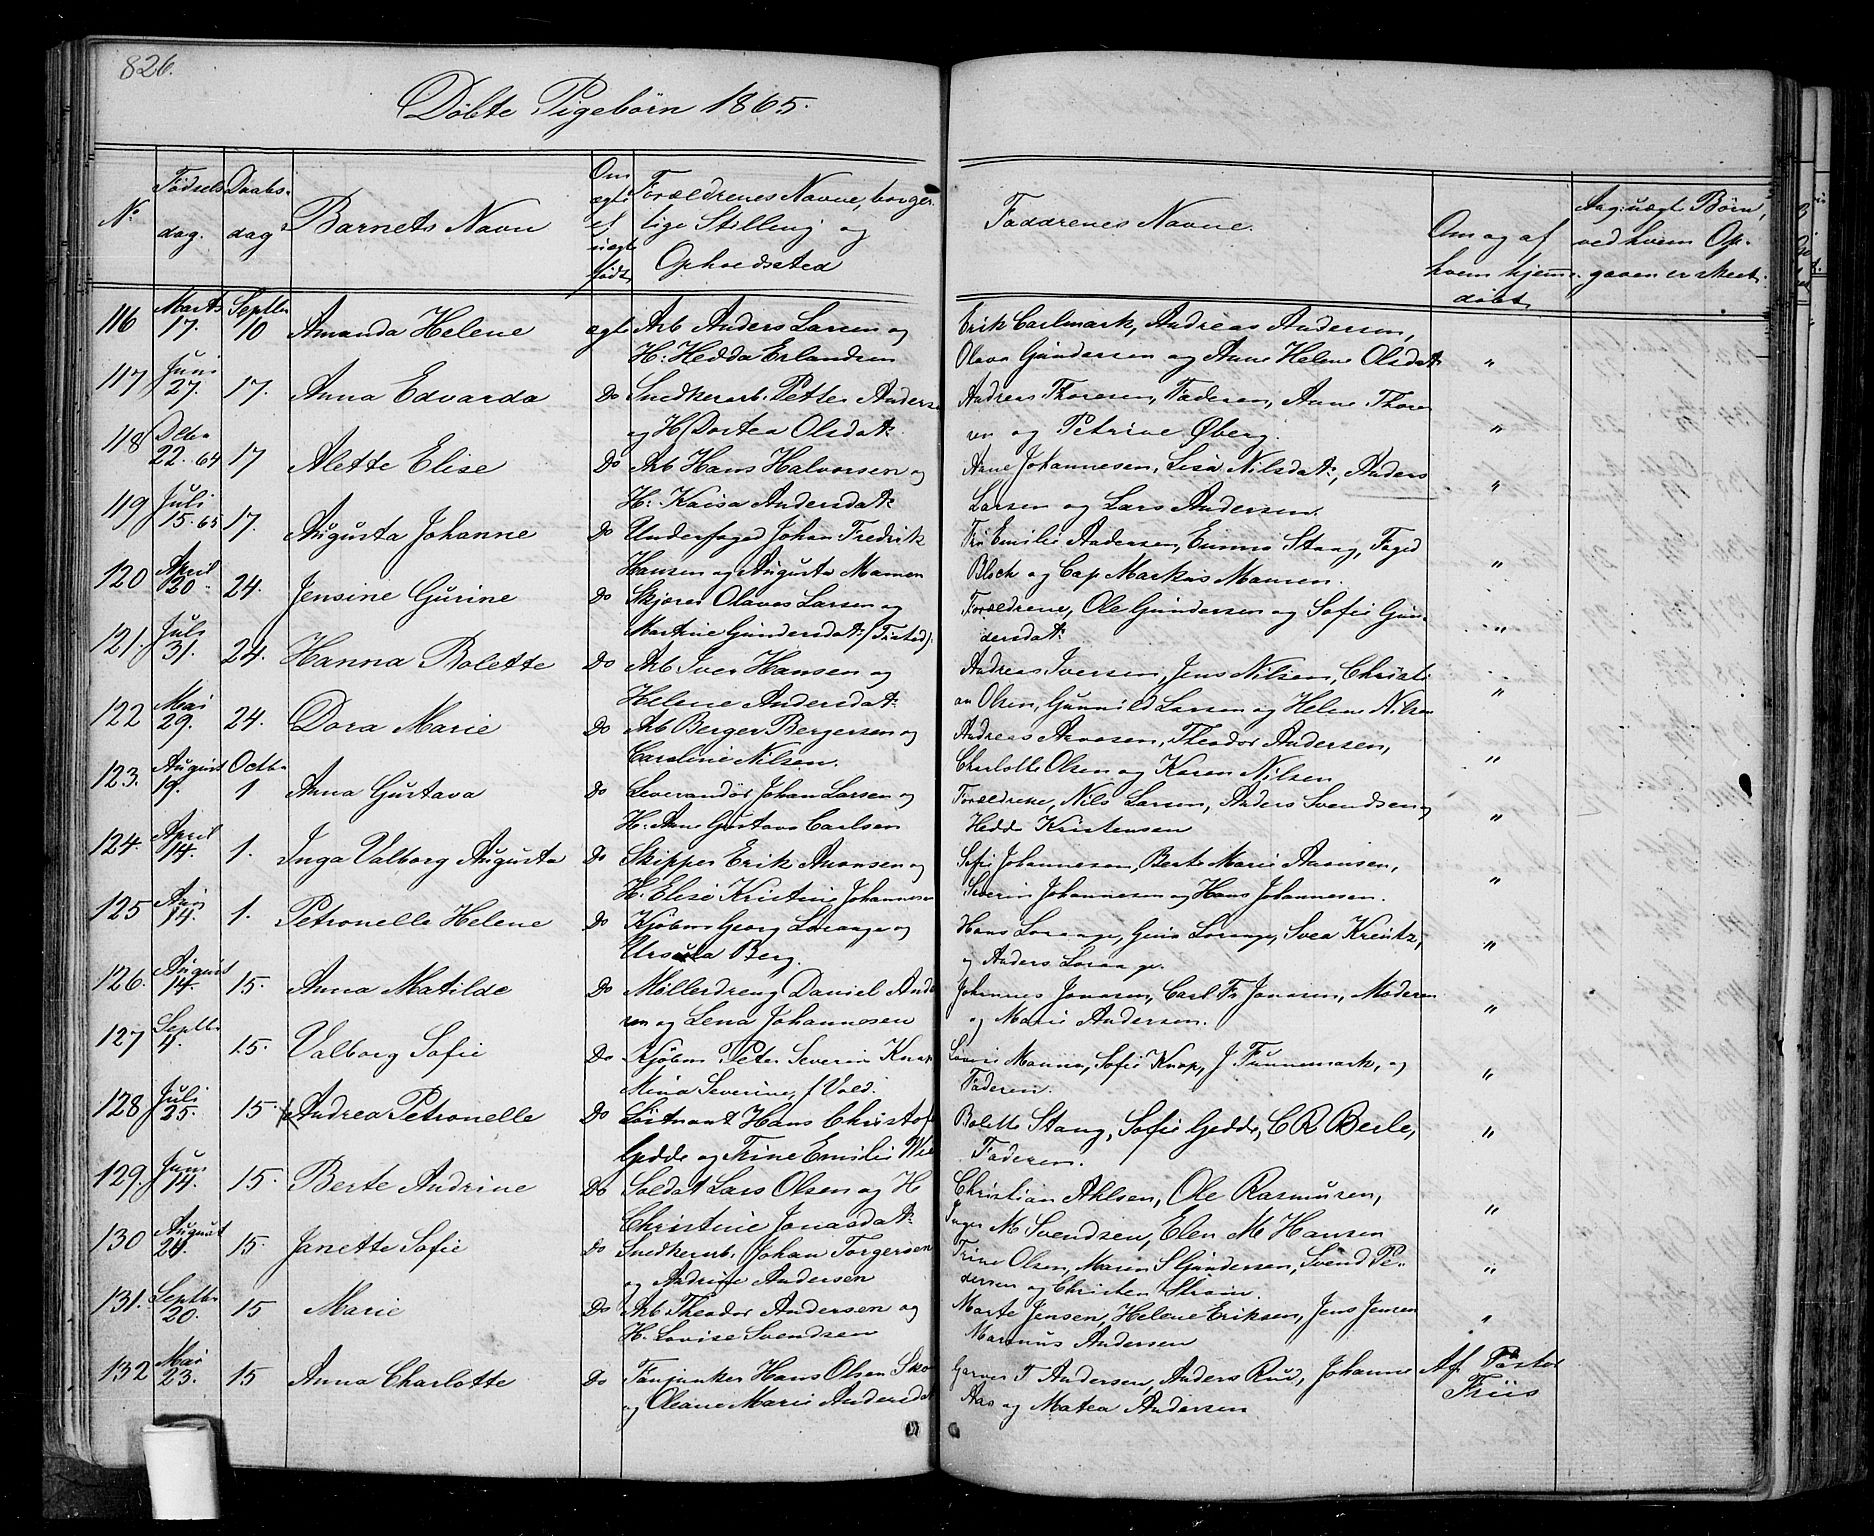 826.
Døbte Pigebørn 1865.
No
Fødsels dag.
Daabs dag
Barnets Navn
Om ægte el uægte født
Forældrenes Navne, borgerlige Stilling og Opholdsted
Faddrenes Navne.
Om og af hvem hjemmedøbt
Ang: uægte Børn, ved hvem Opgaven er skeet.
116 Marts 17. Septbr 10 Amanda Helene ægte Arb Anders Larsen og Erik Carlmark, Andreas Andersen,
H: Hedda Erlandsen Olava Gundersen og Anne Helene Olsdatr "
117 Juni 27. 17. Anna Edvarda Do Snedkerarb. Petter Anderse Andreas Thoresen, Faderen, Anne Thore
og H Dortea Olsdatr sen og Petrine Øberg. "
118 Dcbr 22. 64 17 Alette Elise Do Arb Hans Halvorsen og Arne Johannesen, Lisa Nilsdatr, Anders
H: Kaisa Andersdatr Larsen og Lars Andersen. "
119 Juli 15. 65 17. Augusta Johanne Do Underfoged Johan Fredrik Fru Emilie Andersen, Emma Stang, Foged
Hansen og Augusta Mamen Bloch og Cap Markus Mamen. "
120 April 20. 24. Jensine Gurine Do Skjører Olaves Larsen og Forældrene, Ole Gundersen og Sofie Gun
Martine Gundersdatr (Tisted). dersdatr "
121. Juli 31. 24. Hanna Bolette Do Arb Iver Hansen og Andreas Iversen, Jens Nilsen, Christi
Helene Andersdatr an Olsen, Gunnild Larsen og Helene Nilsen "
122 Mai 29. 24. Dora Marie Do Arb Berger Bergersen og Andreas Arvesen, Theodor Andersen,
Caroline Nilsen. Charlotte Olsen og Karen Nilsen "
123. August 19. Octbr 1 Anna Gustava Do Leverandør Johan Larsen og Forældrene, Nils Larsen, Anders Svendsen og
H: Anne Gustava Carlsen Hedda Kristensen "
124. April 14. 1. Inga Valborg Augusta Do Skipper Erik Amonsen og Sofie Johannesen, Berte Marie Aamsen,
H. Elise Kristine Johannesen Severin Johannesen og Hans Johannesen. "
125 14. 1. Petronelle Helene Do Kjøbm Georg Lorange og Hans Lorange, Gina Lorange, Svea Kreutz,
Ursula Berg. og Anders Lorange. "
126. August 14. 15. Anna Matilde Do Møllerdreng Daniel Ande Johannes Jonasen, Carl Fr Jonasen, Moderen
rsen og Lena Johannesen og Marie Andersen. "
127 Septbr 4. 15. Valborg Sofie Do Kjøbm Peter Severin Knap Lovise Manno, Sofie Knap, J. Tunnemark, og
Mina Severine, f Vold. Faderen. "
128 Juli 25. 15. Andrea Petronelle Do Løitnant Hans Christof Bolette Stang, Sofie Gedde, C R Berle,
Gedde og Trine Emilie Wi Faderen. "
129. Juni 14. 15. Berte Andrine Do Soldat Lars Olsen og H Christian Ahlsen, Ole Rasmusen,
Christine Jonasdatr Inger M Svendsen, Elen M Hansen "
130 August 20. 15. Janette Sofie Do Snedkerarb. Johan Torgersen Trine Olsen, Maren S Gundersen, Svend Pe-
og Andrine Andersen dersen og Christen Strøm. "
131. Septbr 20. 15 Marie Do Arb Theodor Andersen og Marte Jensen, Helene Eriksen, Jens Jensen
H. Lovise Svendsen Marenus Andersen "
132 Mai 23. 15 Anna Charlotte Do Fanjunker Hans Olsen Sko Garver T Andersen, Anders Rud, Johanne Af Pastor
og Oleane Marie Andersdatr Aas og Matea Andersen Friis